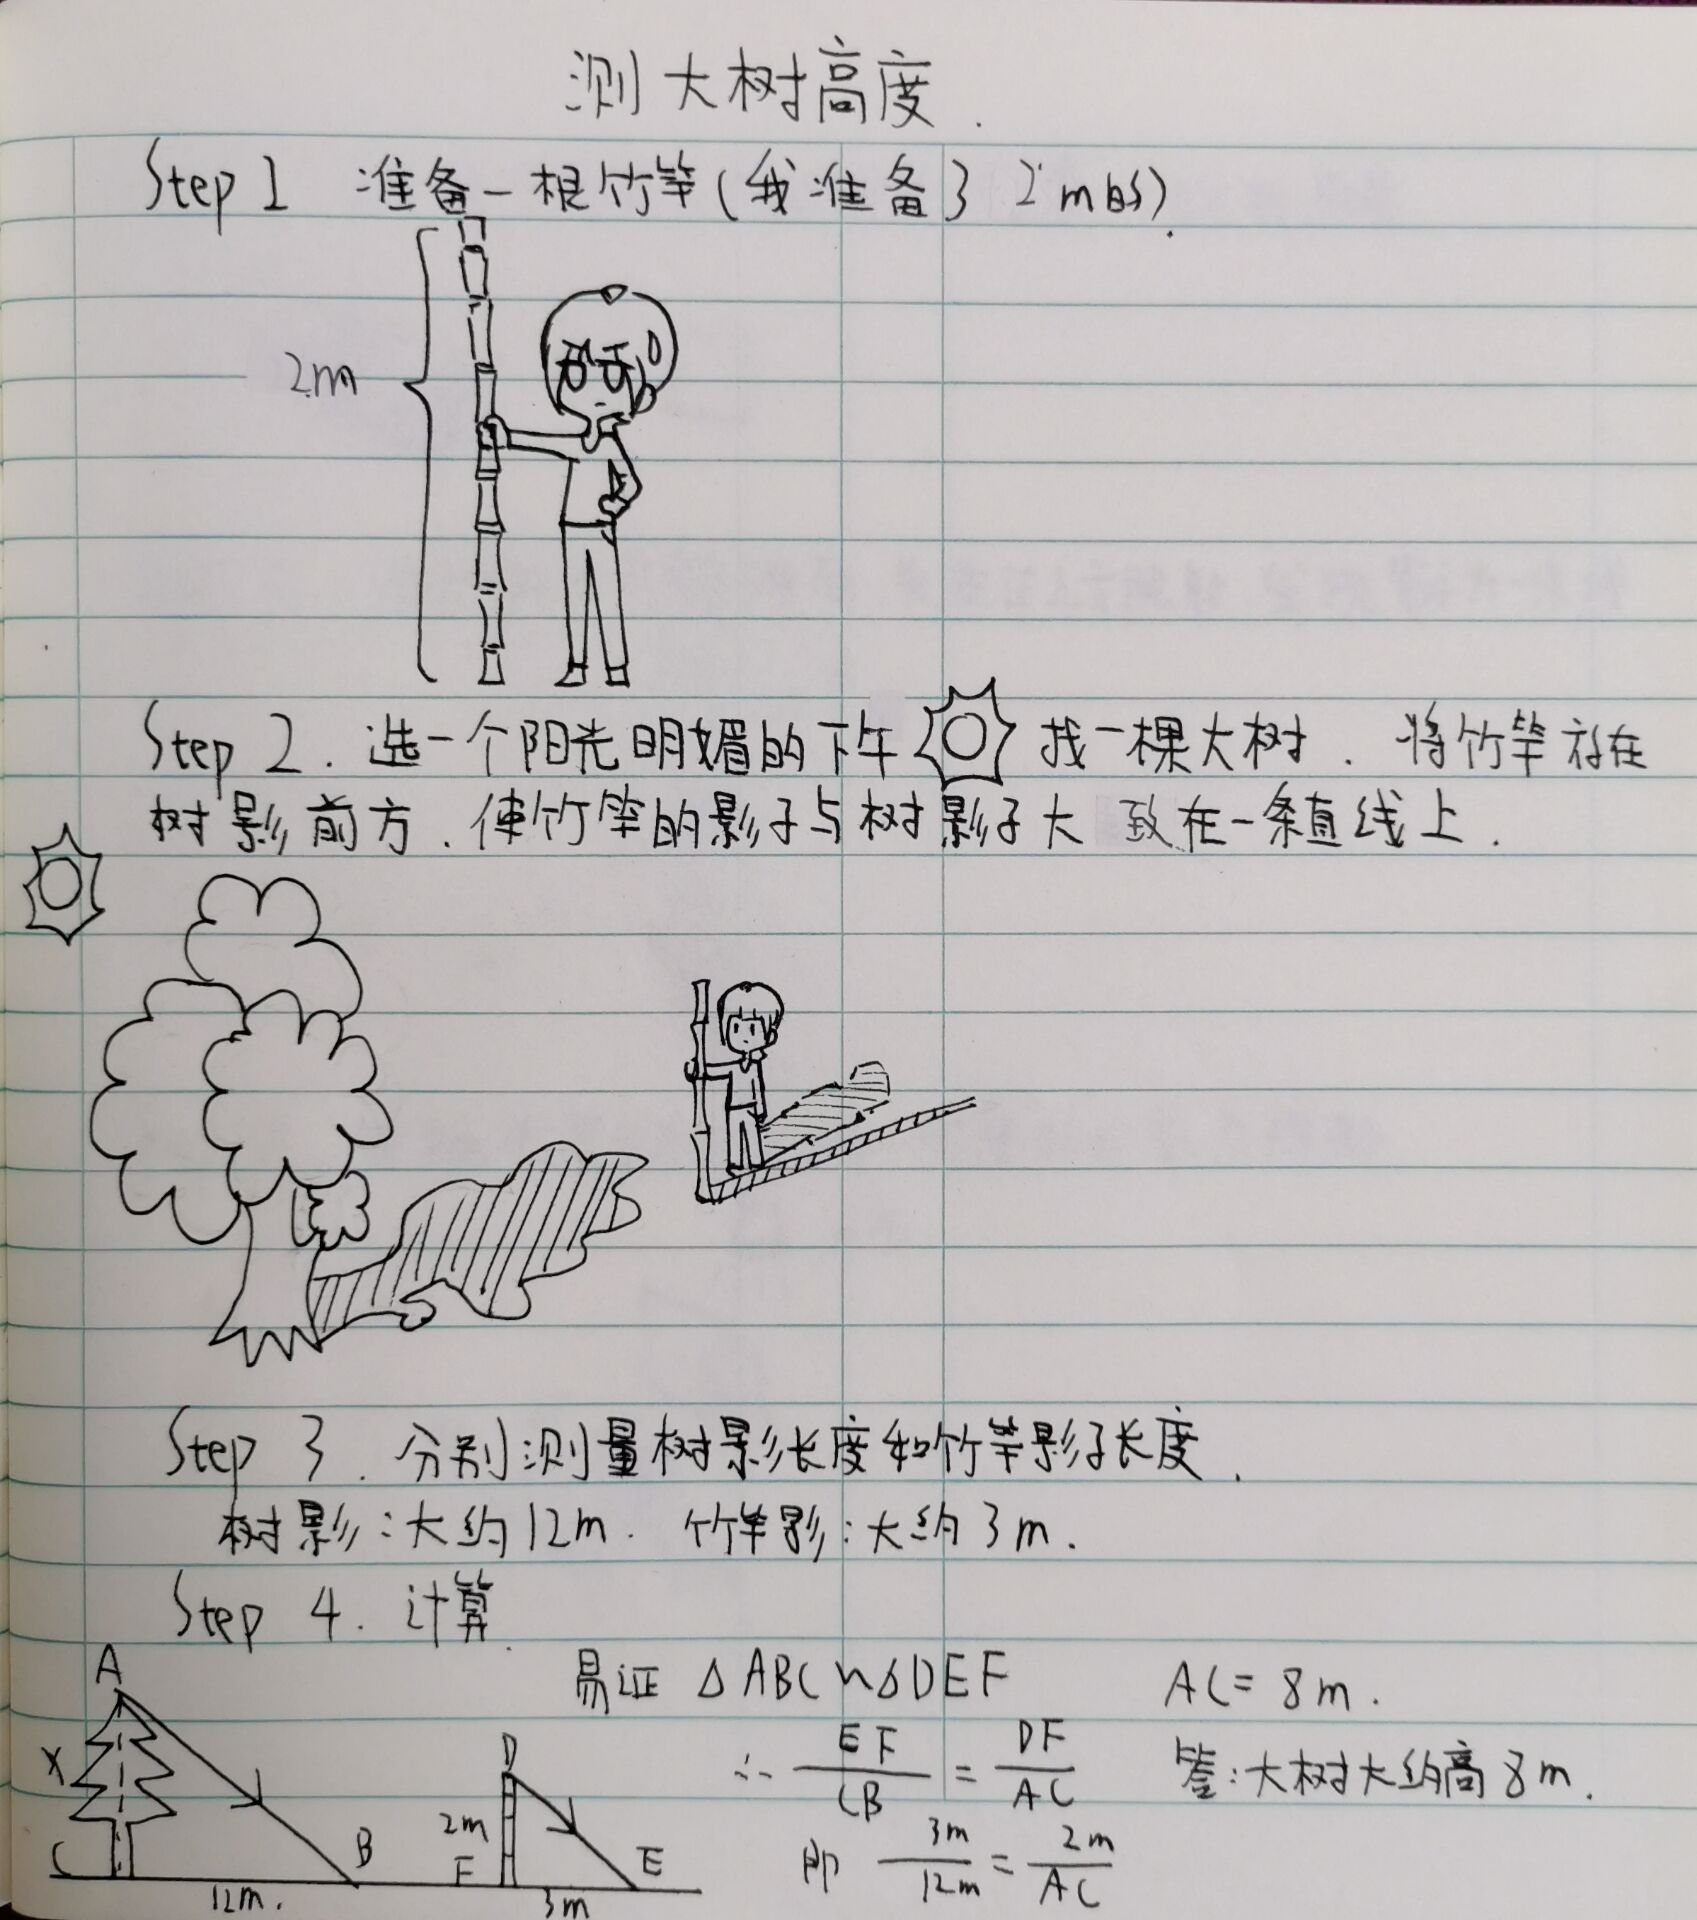 测大树高度.
Step 1 准备一根竹竿(我准备了2m的).
2m
Step 2. 选一个阳光明媚的下午 找一棵大树. 将竹竿放在
树影前方. 使竹竿的影子与树影子大致在一条直线上.
Step 3. 分别测量树影长度和竹竿影子长度.
树影:大约12m. 竹竿影:大约3m.
Step 4. 计算.
A
x
C
B
12m.
D
2m
F
E
3m
易证 △ABC∽△DEF
∴ EF/CB = DF/AC
即 3m/12m = 2m/AC
AC = 8m.
答:大树大约高8m.